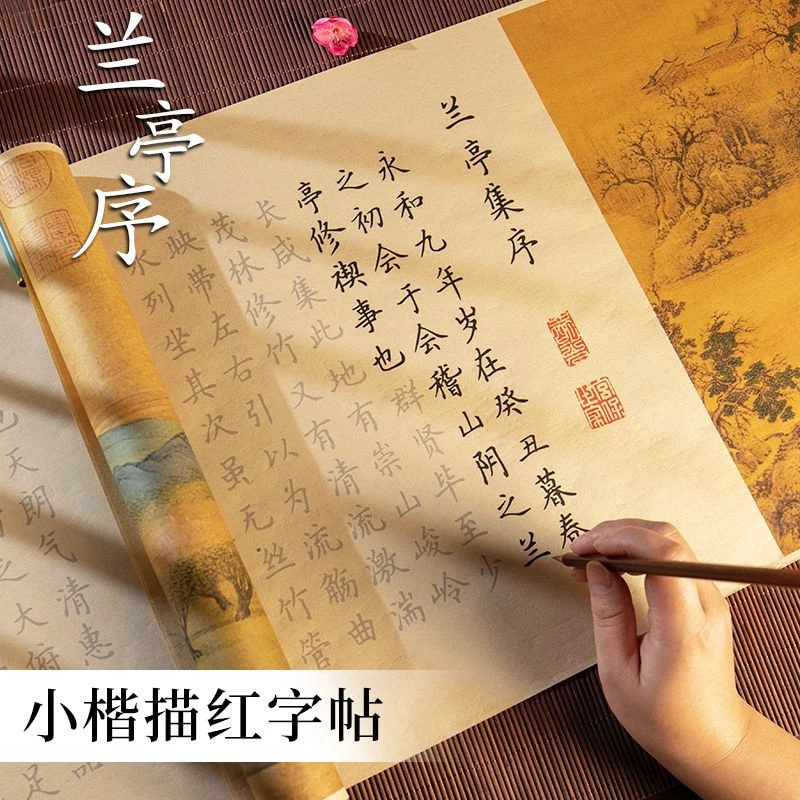 兰亭序
兰亭集序
永和九年岁在癸丑暮春
之初会于会稽山阴之兰
亭修禊事也群贤毕至少
长咸集此地有崇山峻岭
茂林修竹又有清流激湍
映带左右引以为流觞曲
水列坐其次虽无丝竹管
也天朗气清惠
之大俯
小楷描红字帖